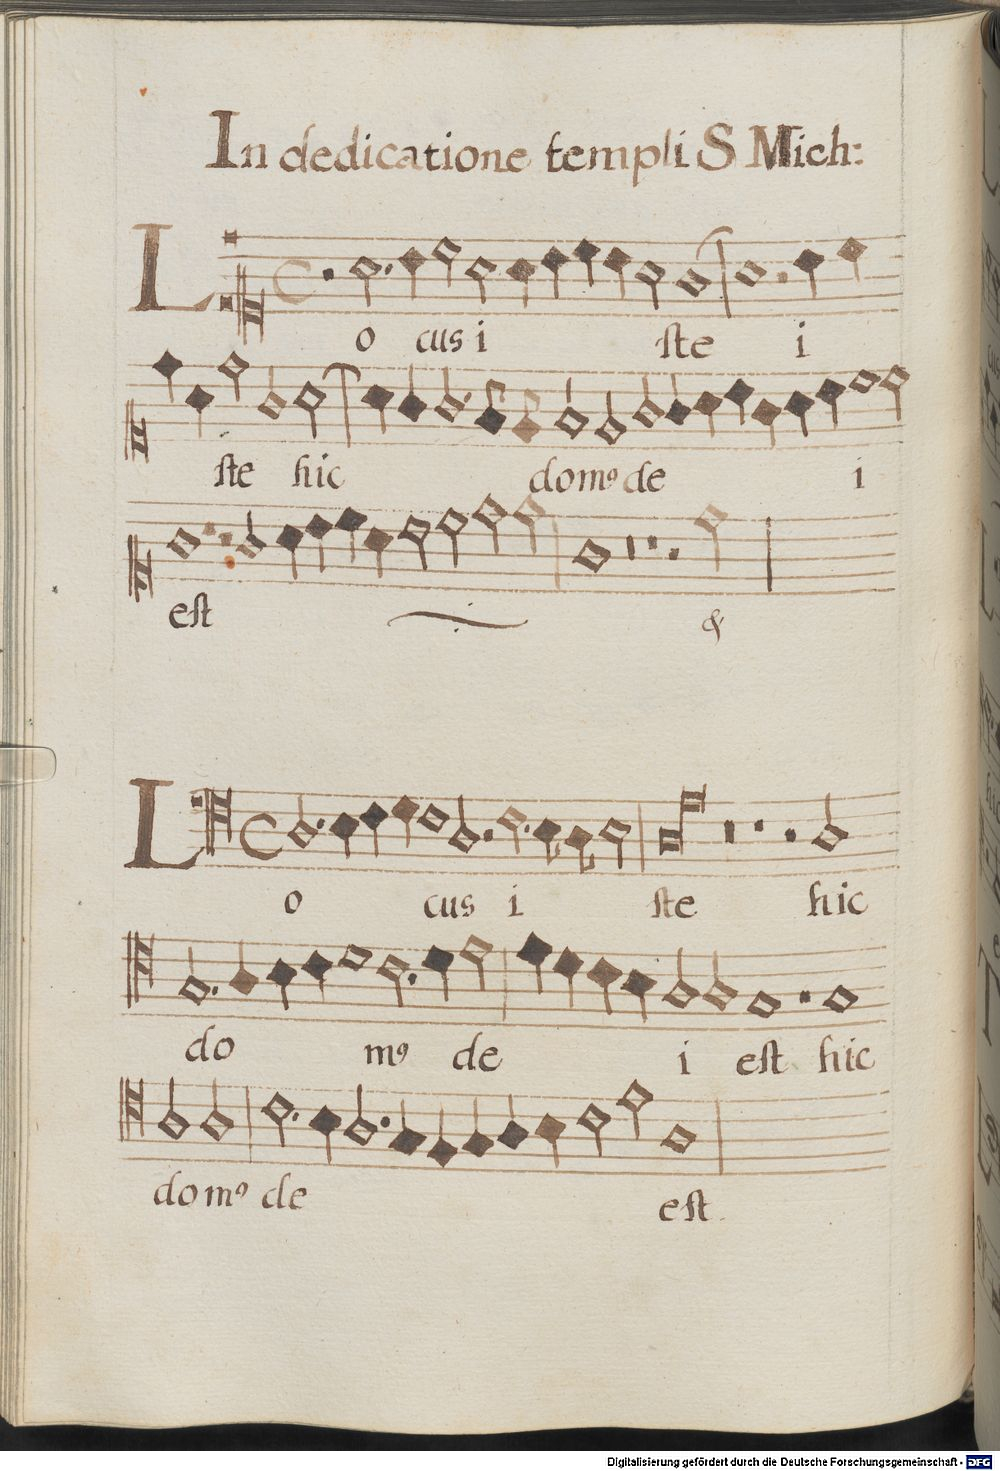 In dedicatione templi S Mich:
Locus i ste i
ste hic domꝰ de i
est &
Locus i ste hic
do mꝰ de i est hic
domꝰ de est.
Digitalisierung gefördert durch die Deutsche Forschungsgemeinschaft - DFG